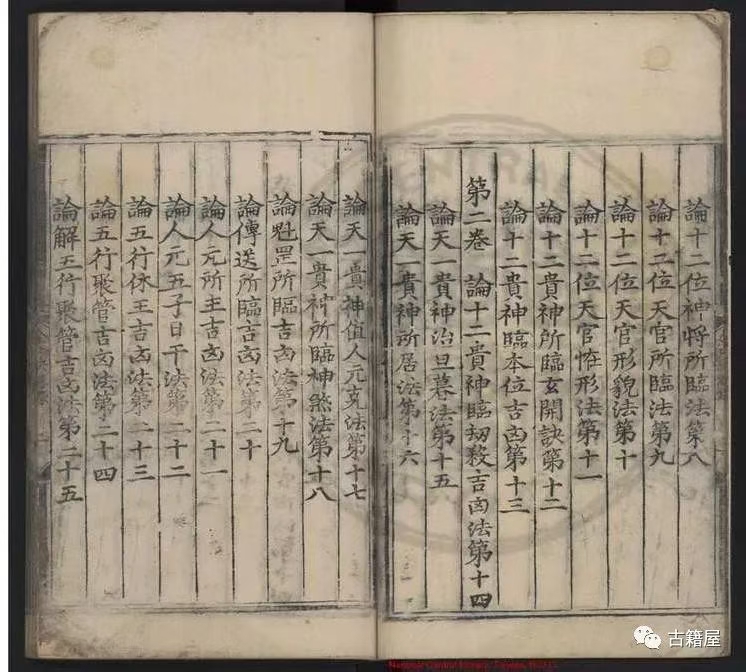 論十二位神將所臨法第八
論十二位天官所臨法第九
論十二位天官形貌法第十
論十二位天官恠形法第十一
論十二貴神所臨玄開訣第十二
論十二貴神臨本位吉凶第十三
第二卷 論十二貴神臨刼殺吉凶法第十四
論天一貴神治旦暮法第十五
論天一貴神所居法第十六
論天一貴神值人元爻法第十七
論天一貴神所臨神煞法第十八
論魁罡所臨吉凶法第十九
論傳送所臨吉凶法第二十
論人元所主吉凶法第二十一
論人元五子日干法第二十二
論五行休王吉凶法第二十三
論五行聚管吉凶法第二十四
論解五行聚管吉凶法第二十五
古籍屋